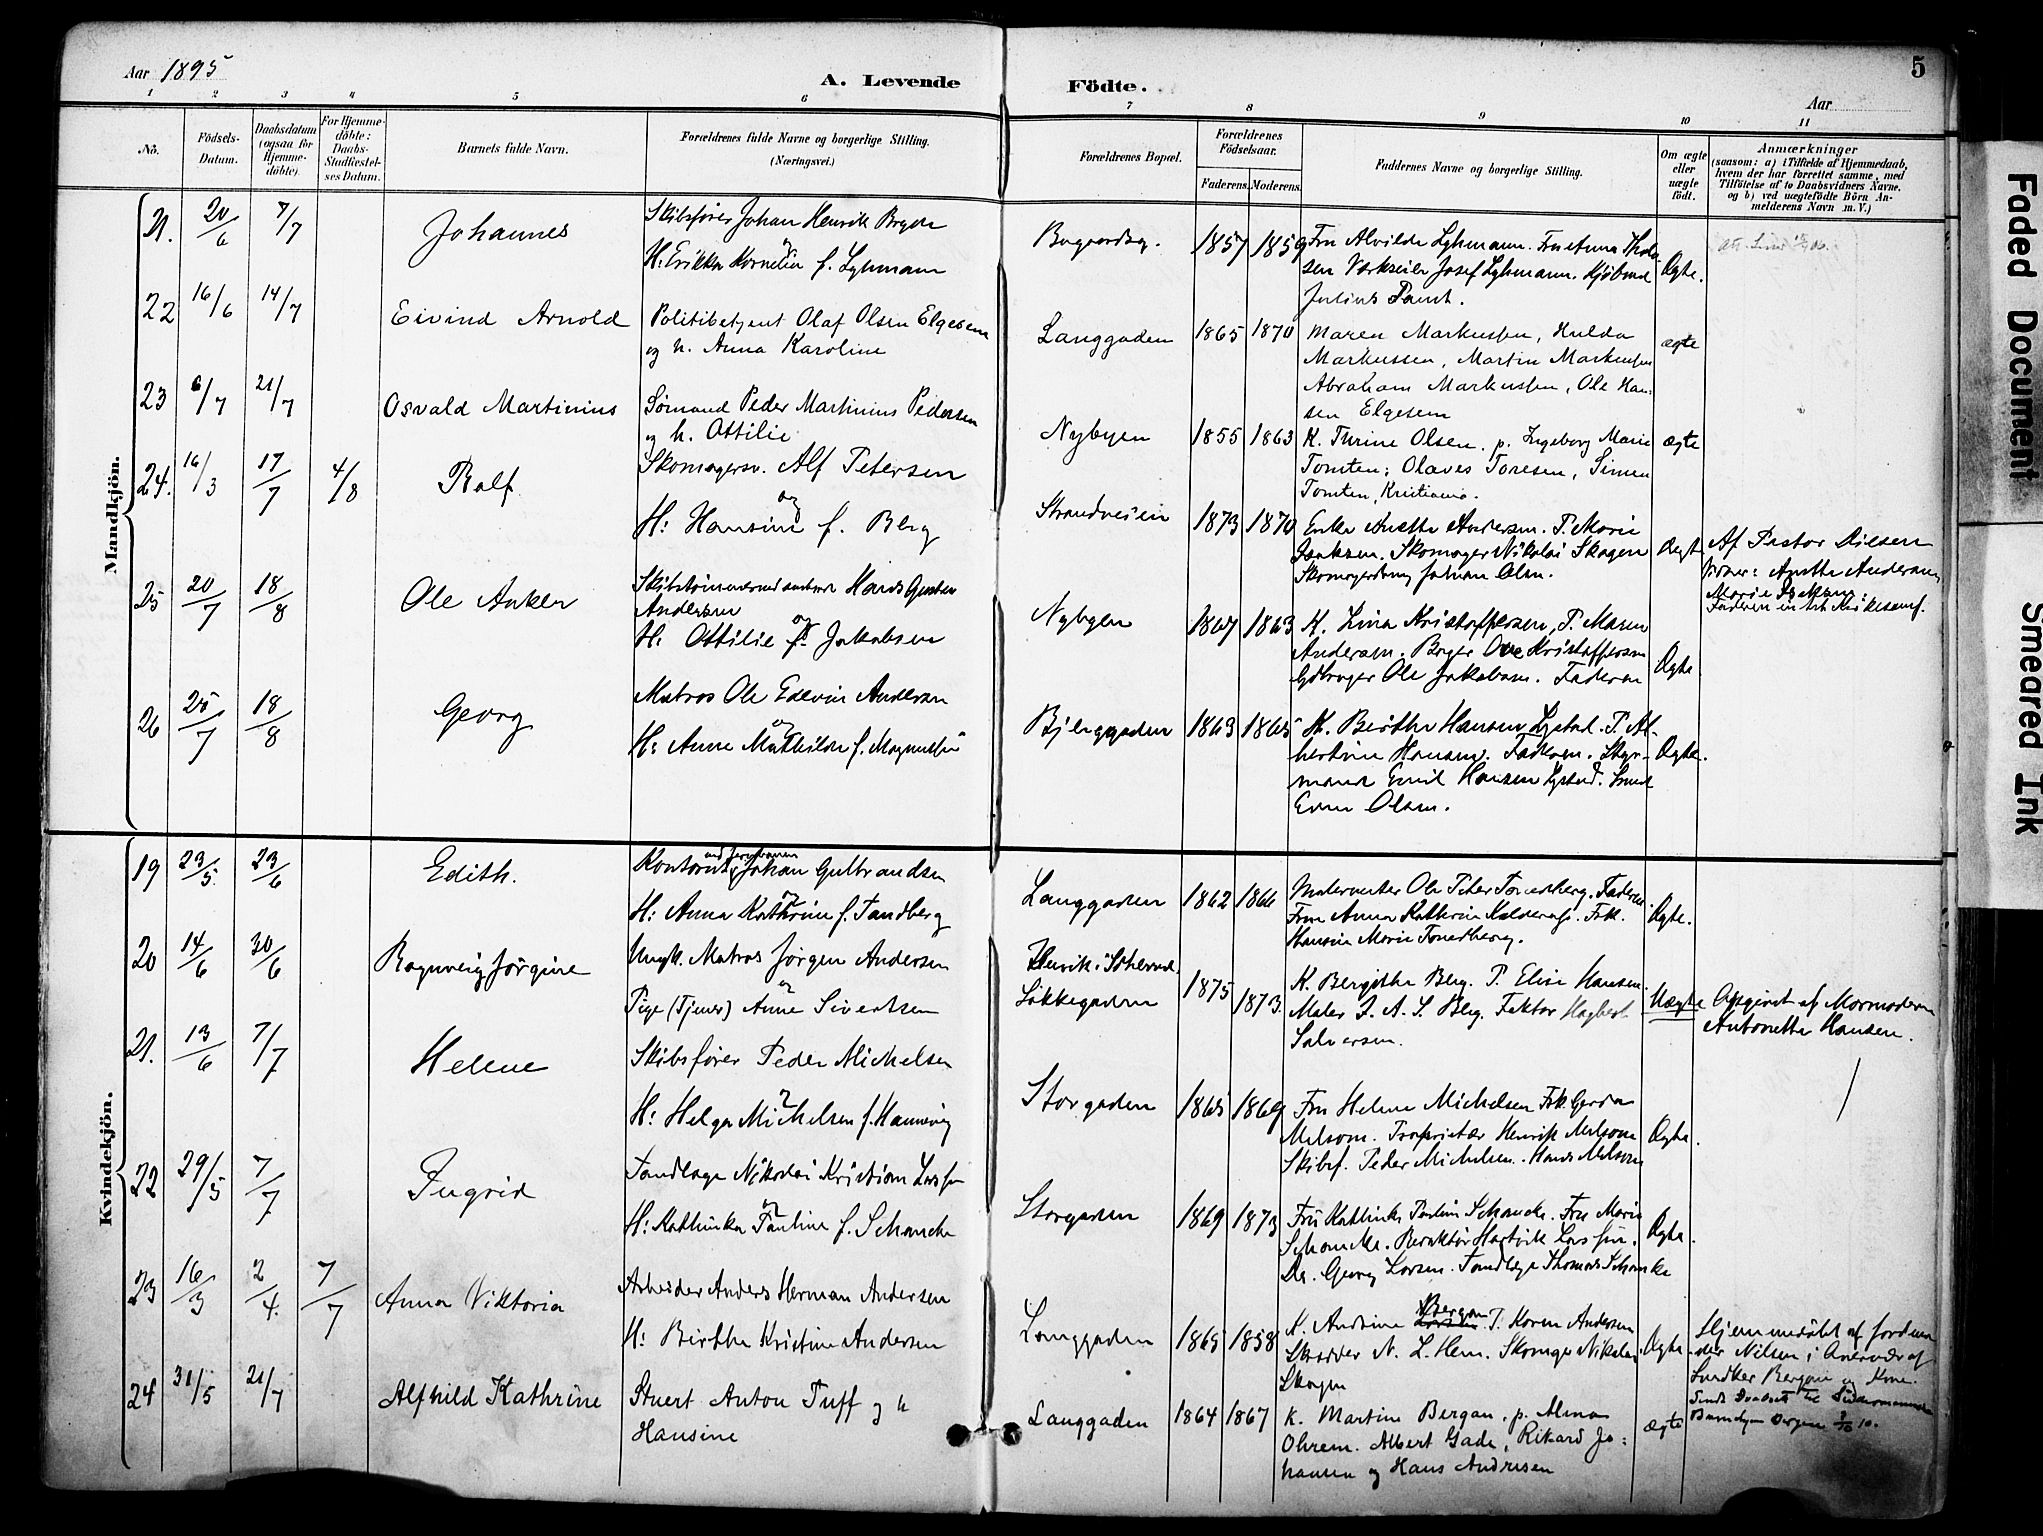 Aar 1895
A. Levende Födte.
5
Aar
1 2 3 4 5 6 7 8 9 10 11
Nô.
Födsels-Datum.
Daabsdatum (ogsaa for Hjemme-döbte).
For Hjemme-döbte: Daabs-Stadfæstel-ses Datum.
Barnets fulde Navn.
Forældrenes fulde Navne og borgerlige Stilling. (Næringsvei.)
Forældrenes Bopæl.
Forældrenes Födselsaar.
Faderens. Moderens.
Faddernes Navne og borgerlige Stilling.
Om ægte eller uægte födt.
Anmærkninger (saasom: a) i Tilfælde af Hjemmedaab, hvem der har forrettet samme, med Tilföielse af to Daabsvidners Navne, og b) ved uægtefödte Börn An-melderens Navn m. V.)
Mandkjön.
21. 20/6 7/7 Johannes
Skibsfører Johan Henrik Bryde
og
H: Erikka Kornelia f. Lyhmann
1857 1859
Fru Alvilde Lyhmann. Fru Anna
Josef Lyhmann.
Julius
Ægte.
22 16/6 14/7 Eivind Arnold
Politibetjent Olaf Olsen Elgesem
og h. Anna Karoline
Langgaden 1865 1870
Maren Markussen, Hulda
Markussen, Martin Markussen
Abraham Markussen, Ole Han-
sen Elgesem
ægte
23 6/7 21/7 Osvald Martinius
Sømand Peder Martinius Pedersen
og h. Ottilie
Nybyen 1855 1863
K. Turine Olsen, p. Ingeborg Marie
Tomten; Olaves Toresen, Simen
Tomten, Kristiania.
ægte
24. 16/3 17/7 4/8 Ralf
Skomagersv. Alf Petersen
og
H: Hansine f. Berg
Strandveien 1873 1870
Enke Anette Andersen. P. Marie
Isaksen. Skomager Nikolai Skogen
Skomagersvend Johan Olsen.
Ægte
Af Pastor Olesen
Vidner: Anette Andersen
Marie Isaksen.
25 20/7 18/8 Ole Anker
Hans Gustav
Andersen
og
H: Ottilie f. Jakobsen
Nybyen 1867 1863
K. Lina Kristoffersen, P. Maren
Andersen. Bager Ove Kristoffersen
Ole Jakobsen. Faderen
Ægte
26 25/7 18/8 Georg
Matros Ole Edevin Andersen
og
H: Anne Mathilde f. Magnussen
Bjerggaden 1863 1865
K. Birthe Hansen Lystad. P. Al-
bertine Hansen. Faderen. Styr-
mand Emil Hansen Lystad. Smed
Even Olsen.
Ægte.
Kvindekjön.
19 23/5 23/6 Edith.
Kontorist ved Jernbanen Johan Gulbrandsen
og
H: Anna Kathrine f. Tandberg
Langgaden 1862 1866
Ole Peter Tandberg. Faderen
Fru Anna Kathrine Kalderas. Frk.
Hansine Marie Tandberg.
Ægte.
20 14/6 30/6 Ragnveig Jørgine
Ungk. Matros Jørgen Andersen
og
Pige (Tjener) Anne Sivertsen
Løkkegaden 1875 1873
K. Bergithe Berg. P. Elise Hansen.
Maler J. A. S. Berg. Faktor Hagbart
Salvesen.
Uægte
Opgivet af Mormoderen
Antonette Hansen.
21. 13/6 7/7 Helene
Skibsfører Peder Michelsen
H: Helga Michelsen f. Hannevig
Storgaden 1865 1869
Fru Helene Michelsen Frk. Gerda
Melsom. Proprietær Henrik Melsom
Skibsf. Peder Michelsen. Hans Melsom
Ægte.
22 29/5 7/7 Ingrid
Tandlæge Nikolai Kristian Larssen
H: Kathinka Pauline f. Schancke
Storgaden 1869 1873
Fru Kathinka Pauline Schancke. Fru Marie
Schancke. Hartvik Larssen.
Dr. Georg Larsen. Tandlæge Thomas Schancke
Ægte.
23 16/3 2/4. 7/7 Anna Viktoria
Arbeider Anders Herman Andersen
H: Birthe Kristine Andersen
Langgaden 1865 1858
K. Andrine Bergan P. Karen Andersen
Skrædder N. L. Hem. Skomager Nikolai
Skogen
Ægte
Hjemmedøbt af Jordmo-
der Nilsen i Nærvær af
Bergan og Kone.
24 31/5 21/7 Alfhild Kathrine
Stuert Anton Tuff og h
Hansine
Langgaden 1864 1867
K. Martine Bergan, p. Alma
Ohrem. Albert Gade, Rikard Jo-
hansen og Hans Andresen
ægte
Faded Document
Smeared Ink